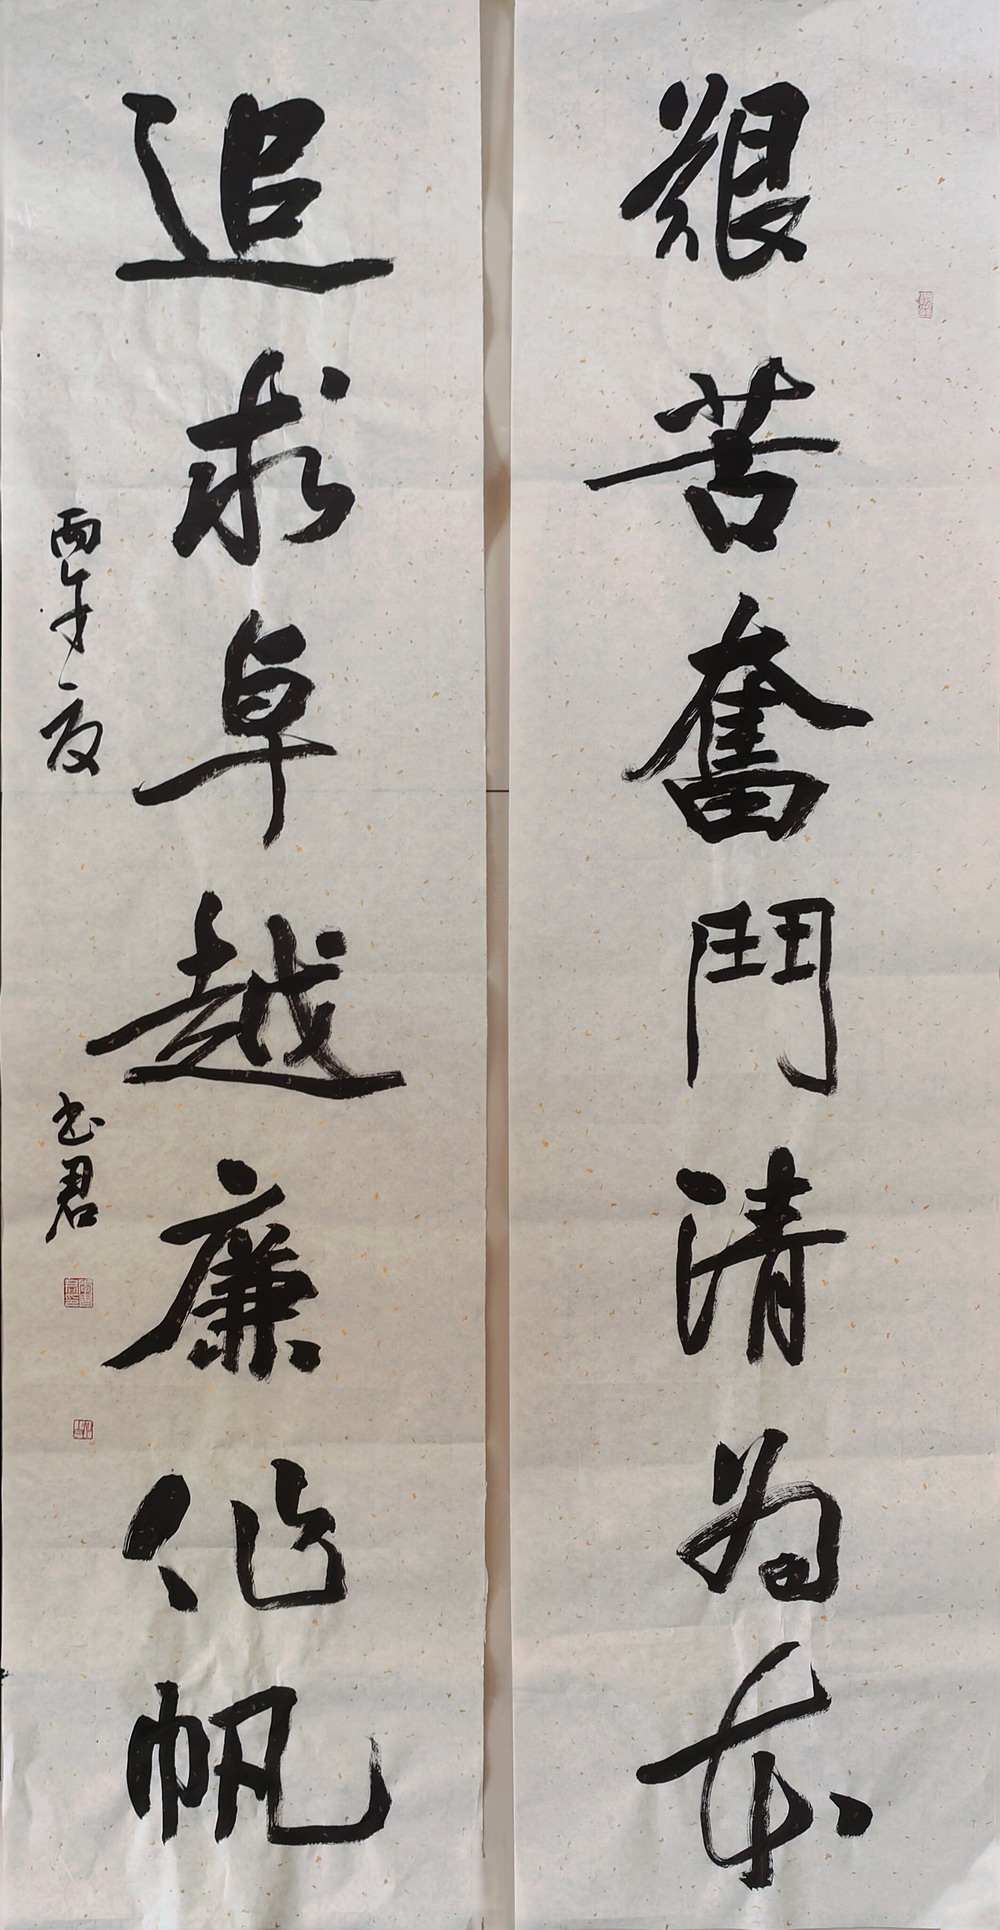 艱苦奮鬥清为本
追求卓越廉作帆
丙午夏
书君